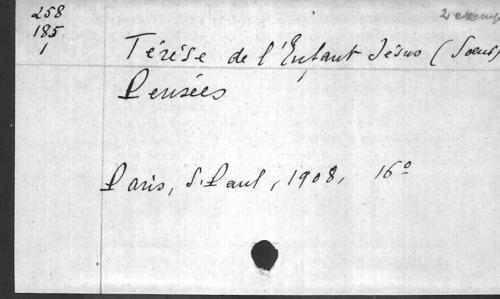 258
185
1
2 exemp
Térése de l'Enfant Jésus (Soeur)
Pensées
Paris, S. Paul, 1908, 16º